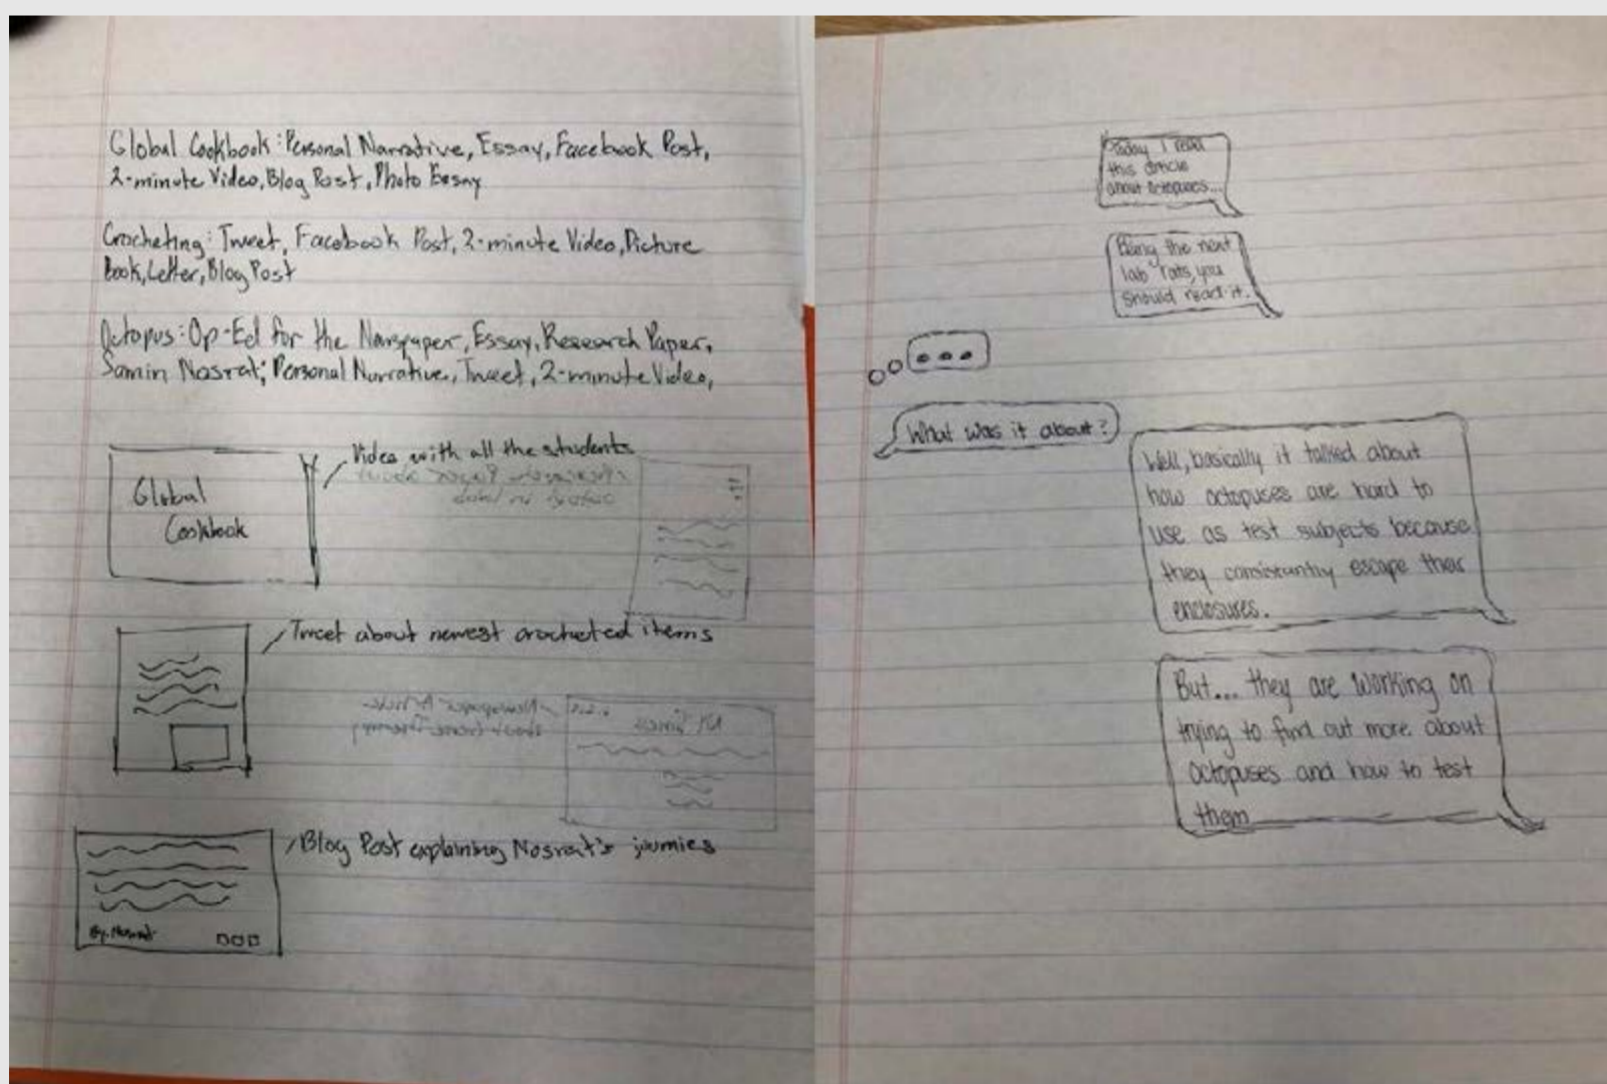 Global Cookbook: Personal Narrative, Essay, Facebook Post,
2-minute Video, Blog Post, Photo Essay
Crocheting: Tweet, Facebook Post, 2-minute Video, Picture
Book, Letter, Blog Post
Octopus: Op-Ed for the Newspaper, Essay, Research Paper,
Samin Nosrat; Personal Narrative, Tweet, 2-minute Video,
Global
Cookbook
Video with all the students
Tweet about newest crocheted items
Blog Post explaining Nosrat's journies
By: Nosrat
Research Paper about
NY Times
Newspaper Article
Today I read
this article
about octopuses...
Being the next
lab rats, you
should read it.
What was it about?
Well, basically it talked about
how octopuses are hard to
use as test subjects because
they consistantly escape their
enclosures.
But... they are working on
trying to find out more about
octopuses and how to test
them